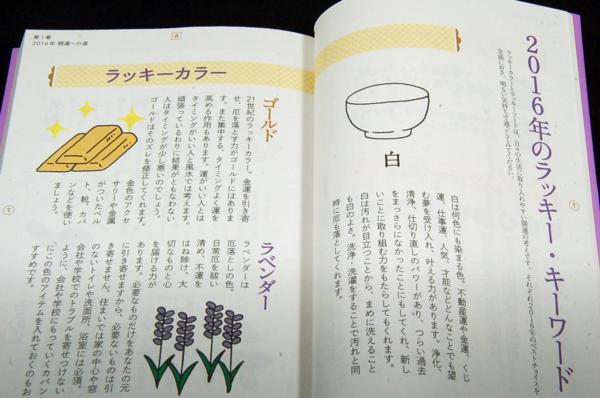 2016年のラッキー・キーワード
ラッキーカラーとラッキーフードは、日々の生活に取り入れやすい開運の考えです。それぞれ2016年のベストチョイスを
念頭におき、明るい気持ちで過ごしてみてください。
①
白
白は何色にも染まる色。不動産運や金運、くじ
運、仕事運、人気、才能などどんなことでも望
む夢を受け入れ、叶える力があります。浄化、
清浄、仕切り直しのパワーがあり、つらい過去
をまっさらになかったことにもしてくれ、新し
いことに取り組む力をもたらしてもくれます。
白は汚れが目立つことから、まめに洗えること
も白のよさ。洗浄・洗濯をすることで汚れと同
時に厄も落としてくれます。
第1章
2016年 開運への道
8
ラッキーカラー
ゴールド
21世紀のラッキーカラー。金運を引き寄
せ、厄を落とす力がゴールドにはありま
す。また集中する、タイミングよく運を
高める作用もあります。運がいい人とは
タイミングがいい人と風水では考えます。
頑張っているわりに結果がともなわない
人はタイミングが少し悪いのでしょう。
ゴールドはそのズレを修正してくれます。
金色のアクセ
サリーや金属
がついたベル
ト、靴、カバ
ンなどを使い
ましょう。
①
ラベンダー
ラベンダーは
厄落としの色。
日常厄を祓い
清め、不運を
はね除け、大
切なものと心
を届ける力が
あります。必要なものだけをあなたの元
に引き寄せますから、必要ないものは引
き寄せません。住まいでは家の中心や窓
のないトイレや洗面所、浴室には必須。
会社や学校でのトラブルを寄せつけない
ように、会社や学校にもっていくカバン
にこの色のアイテムを入れておくのもお
すすめです。